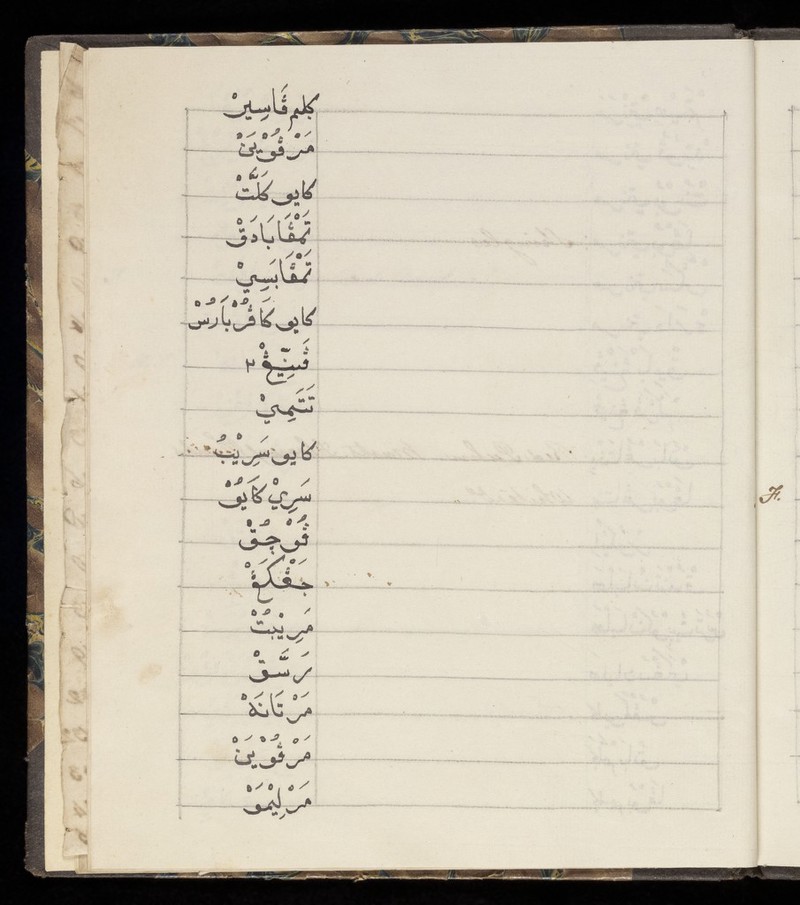 كلمڤاسير
مَرْڤُوْيَنْ
كايو كَلَتْ
تَمْڤَابَادَقْ
تَمْڤَابَسِيْ
كايو كَاڤُرْبَارُسْ
ڤَنِيّڠْ ٢
تَتَمِيْ
كايو سَرِيْبُ
سَرِيْ كَايُوْ
ڤُوْچُقْ
جَڠْكَڠْ
مَرِيْبُتْ
رَسَّقْ
مَرْتَانَهْ
مَرْڤُوْيَنْ
مَرْلِيْمَوْ
F.